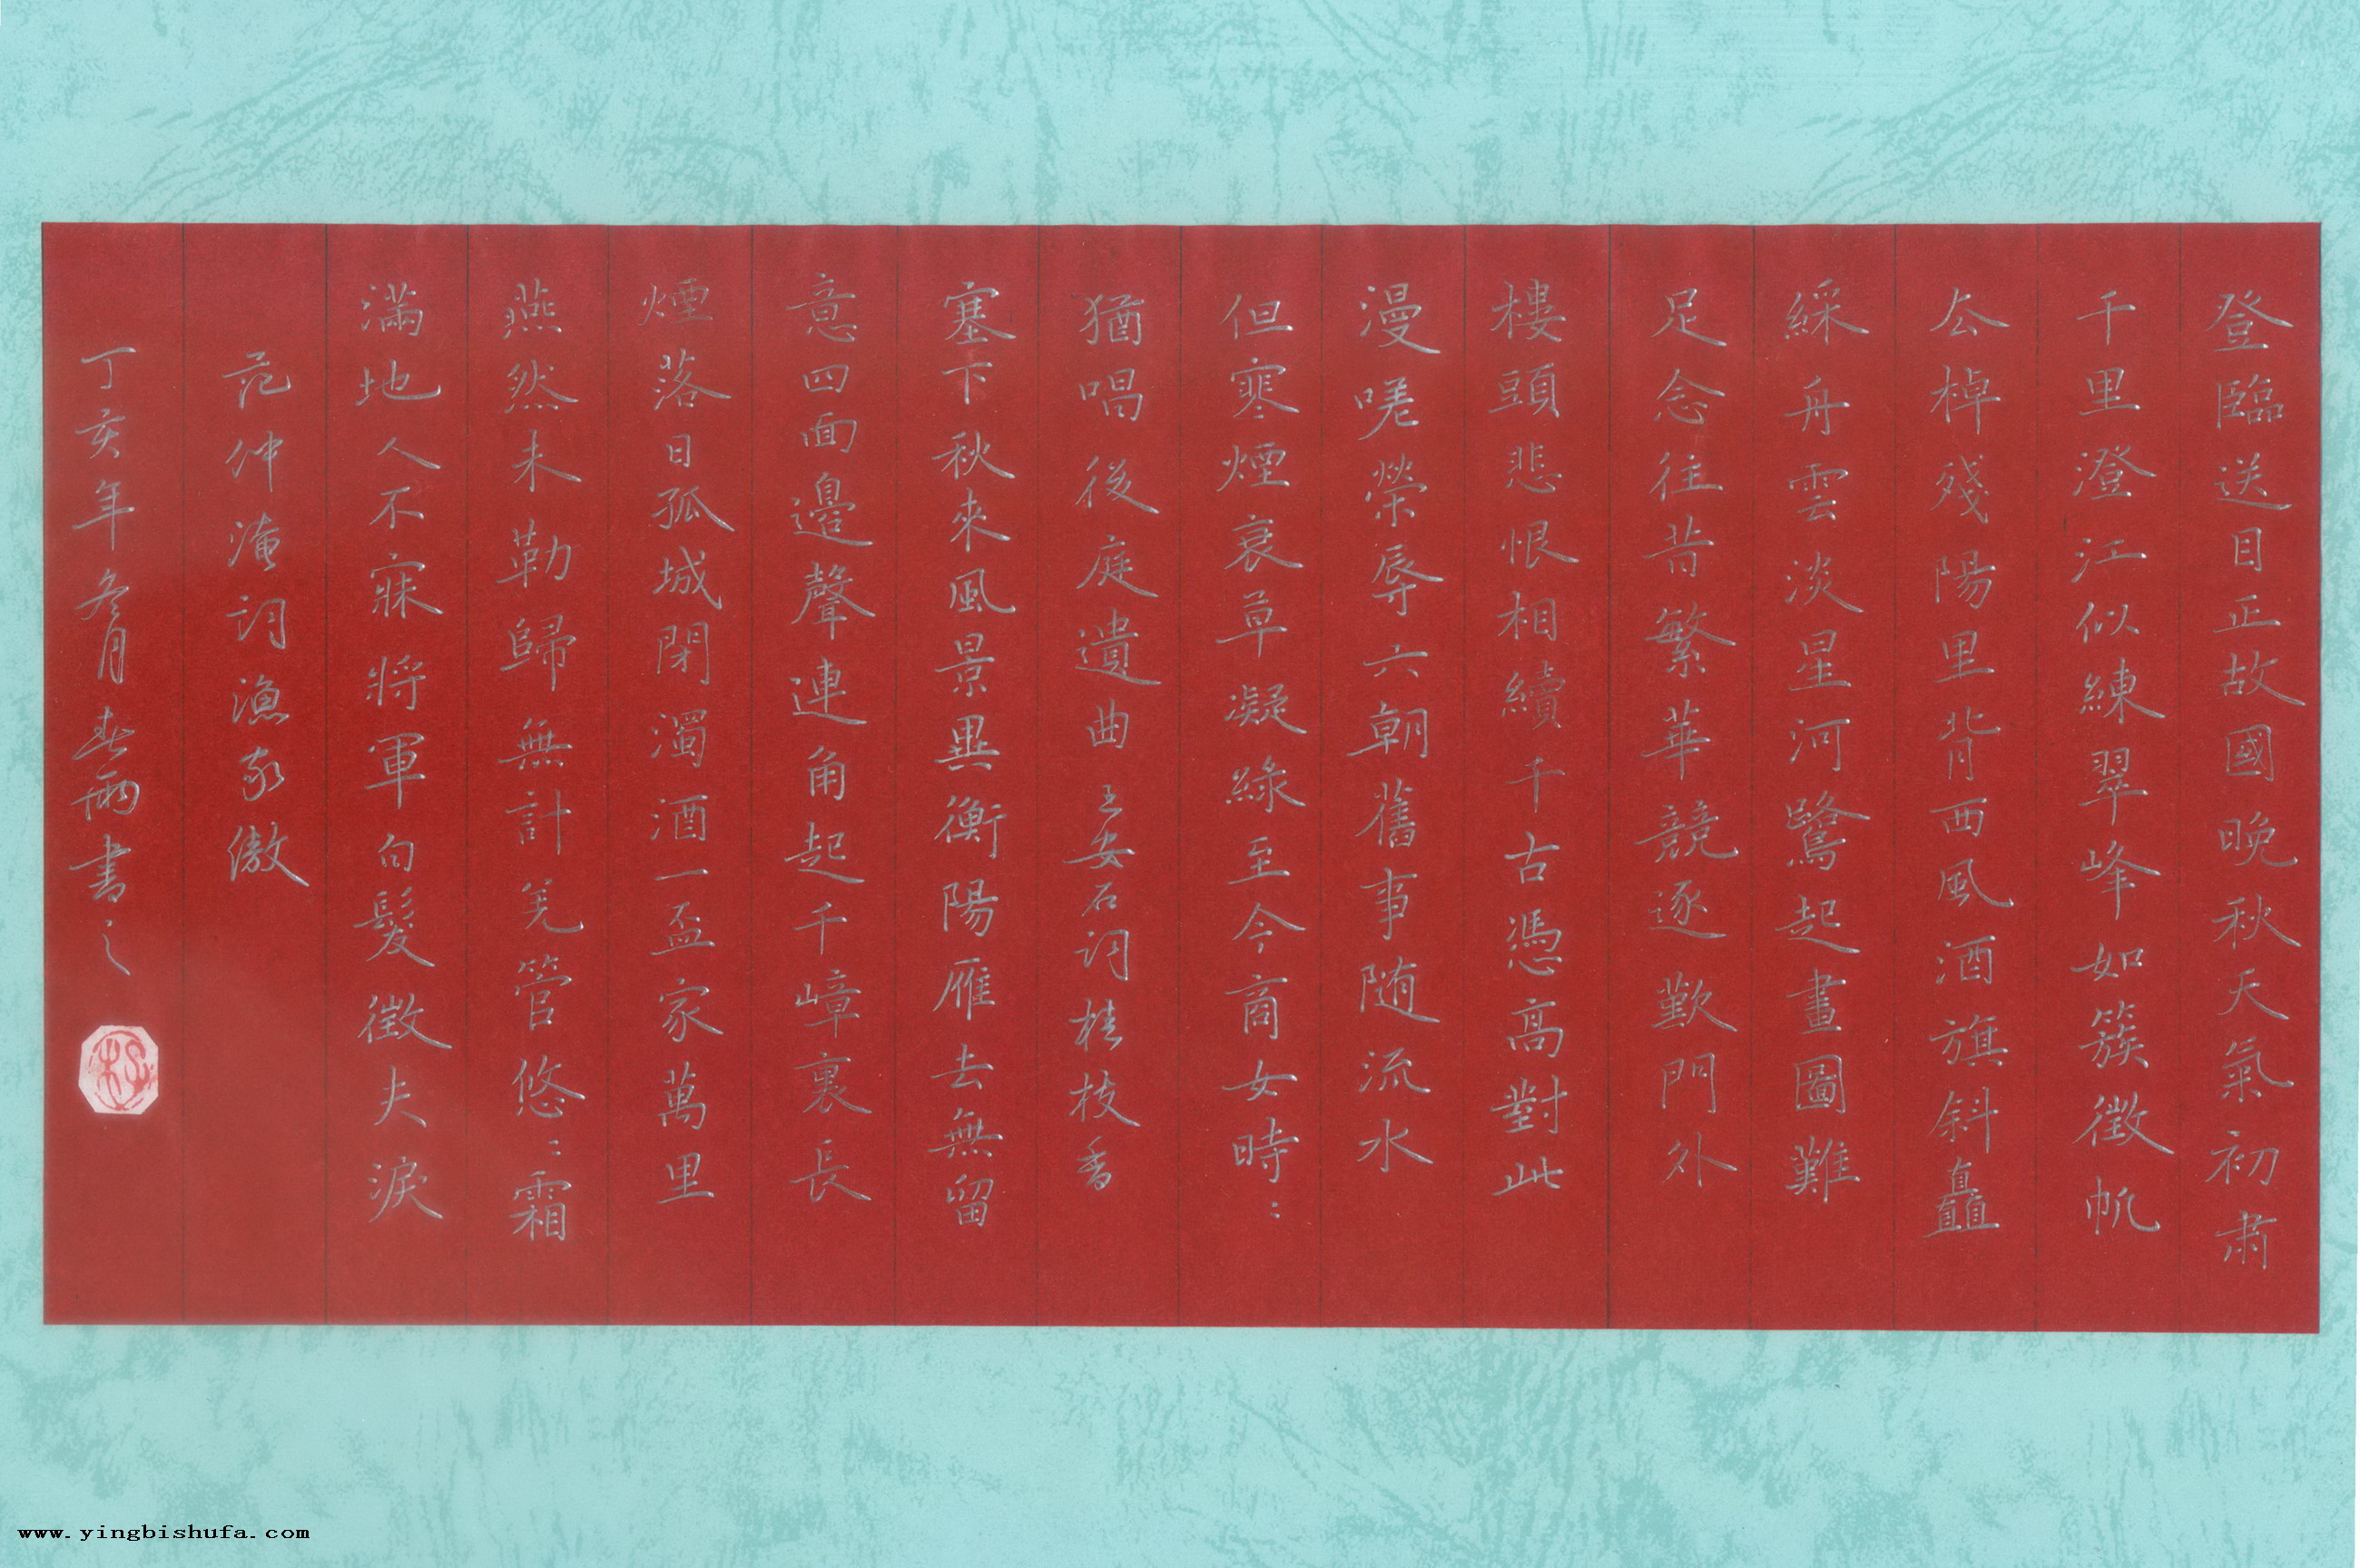 登臨送目正故國晚秋天氣初肅
千里澄江似練翠峰如簇徵帆
去棹殘陽里背西風酒旗斜矗
綵舟雲淡星河鷺起畫圖難
足念往昔繁華競逐歎門外
樓頭悲恨相續千古憑高對此
漫嗟榮辱六朝舊事随流水
但寒煙衰草凝綠至今商女時:
猶唱後庭遺曲 王安石词桂枝香
塞下秋來風景異衡陽雁去無留
意四面邊聲連角起千嶂裏長
煙落日孤城閉濁酒一盃家萬里
燕然未勒歸無計羌管悠:霜
滿地人不寐將軍白髮徵夫淚
范仲淹词漁家傲
丁亥年冬月春雨書之
www.yingbishufa.com